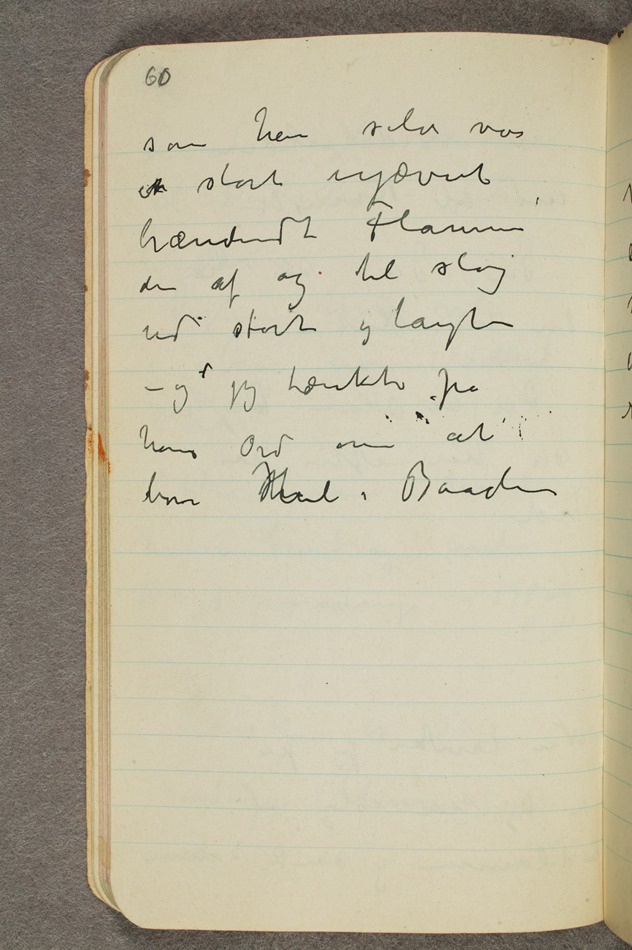 60
som han selv var
en stort ujævnt
brændendt Flamme
der af og til slog
ud stort og langt
– og jeg tænkte på
hans Ord om at
bore Hul i Baaden